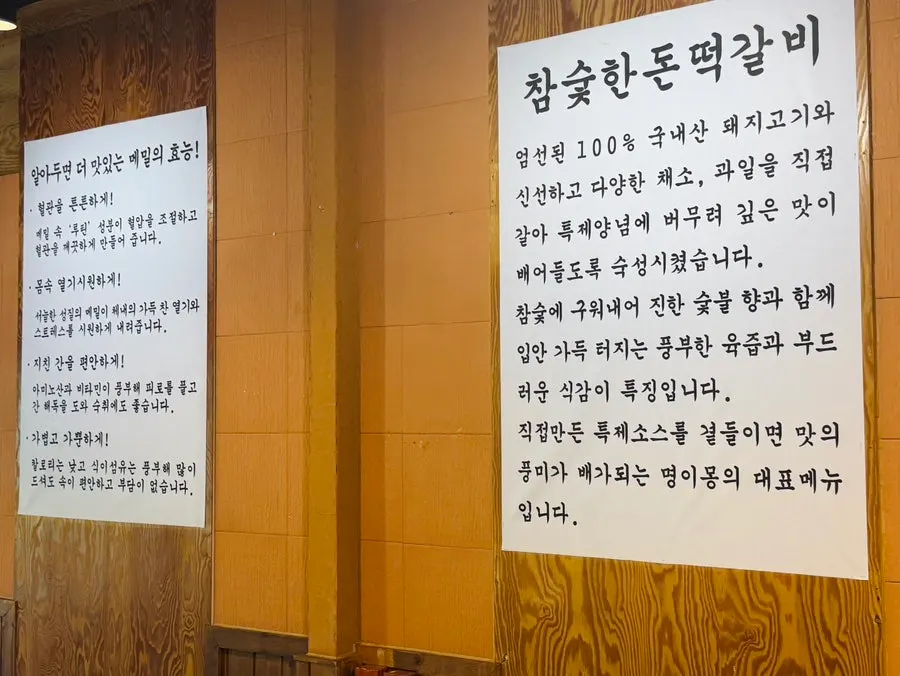 알아두면 더 맛있는 메밀의 효능!
· 혈관을 튼튼하게!
메밀 속 '루틴' 성분이 혈압을 조절하고
혈관을 깨끗하게 만들어 줍니다.
· 몸속 열기시원하게!
서늘한 성질의 메밀이 체내의 가득 찬 열기와
스트레스를 시원하게 내려줍니다.
· 지친 간을 편안하게!
아미노산과 비타민이 풍부해 피로를 풀고
간 해독을 도와 숙취에도 좋습니다.
· 가볍고 가뿐하게!
칼로리는 낮고 식이섬유는 풍부해 많이
드셔도 속이 편안하고 부담이 없습니다.
참숯한돈떡갈비
엄선된 100% 국내산 돼지고기와
신선하고 다양한 채소, 과일을 직접
갈아 특제양념에 버무려 깊은 맛이
배어들도록 숙성시켰습니다.
참숯에 구워내어 진한 숯불 향과 함께
입안 가득 터지는 풍부한 육즙과 부드
러운 식감이 특징입니다.
직접만든 특제소스를 곁들이면 맛의
풍미가 배가되는 명이몽의 대표메뉴
입니다.